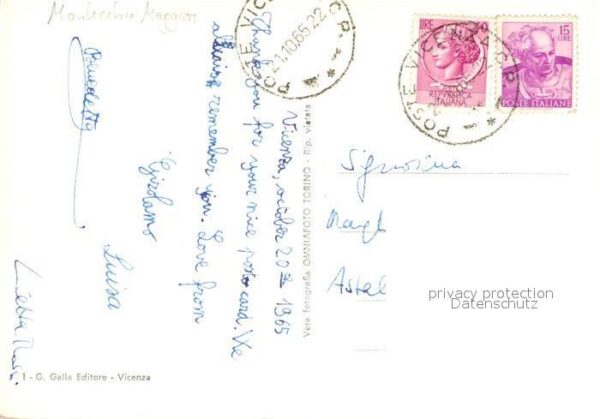 Montecchio Maggiore
Vicenza, october 20th 1965
Thank you for your nice post-card. We
always remember you. Love from
Girolamo
Luisa
Benedetto
POSTE VICENZA C.P.
21.10.65.22
POSTE VICENZA C.P.
LIRE
REPUBBLICA
ITALIANA
15
LIRE
POSTE ITALIANE
Signorina
Astal
privacy protection
Datenschutz
Vera fotografia OMNIAFOTO TORINO - Rip. vietata
1 - G. Galla Editore - Vicenza